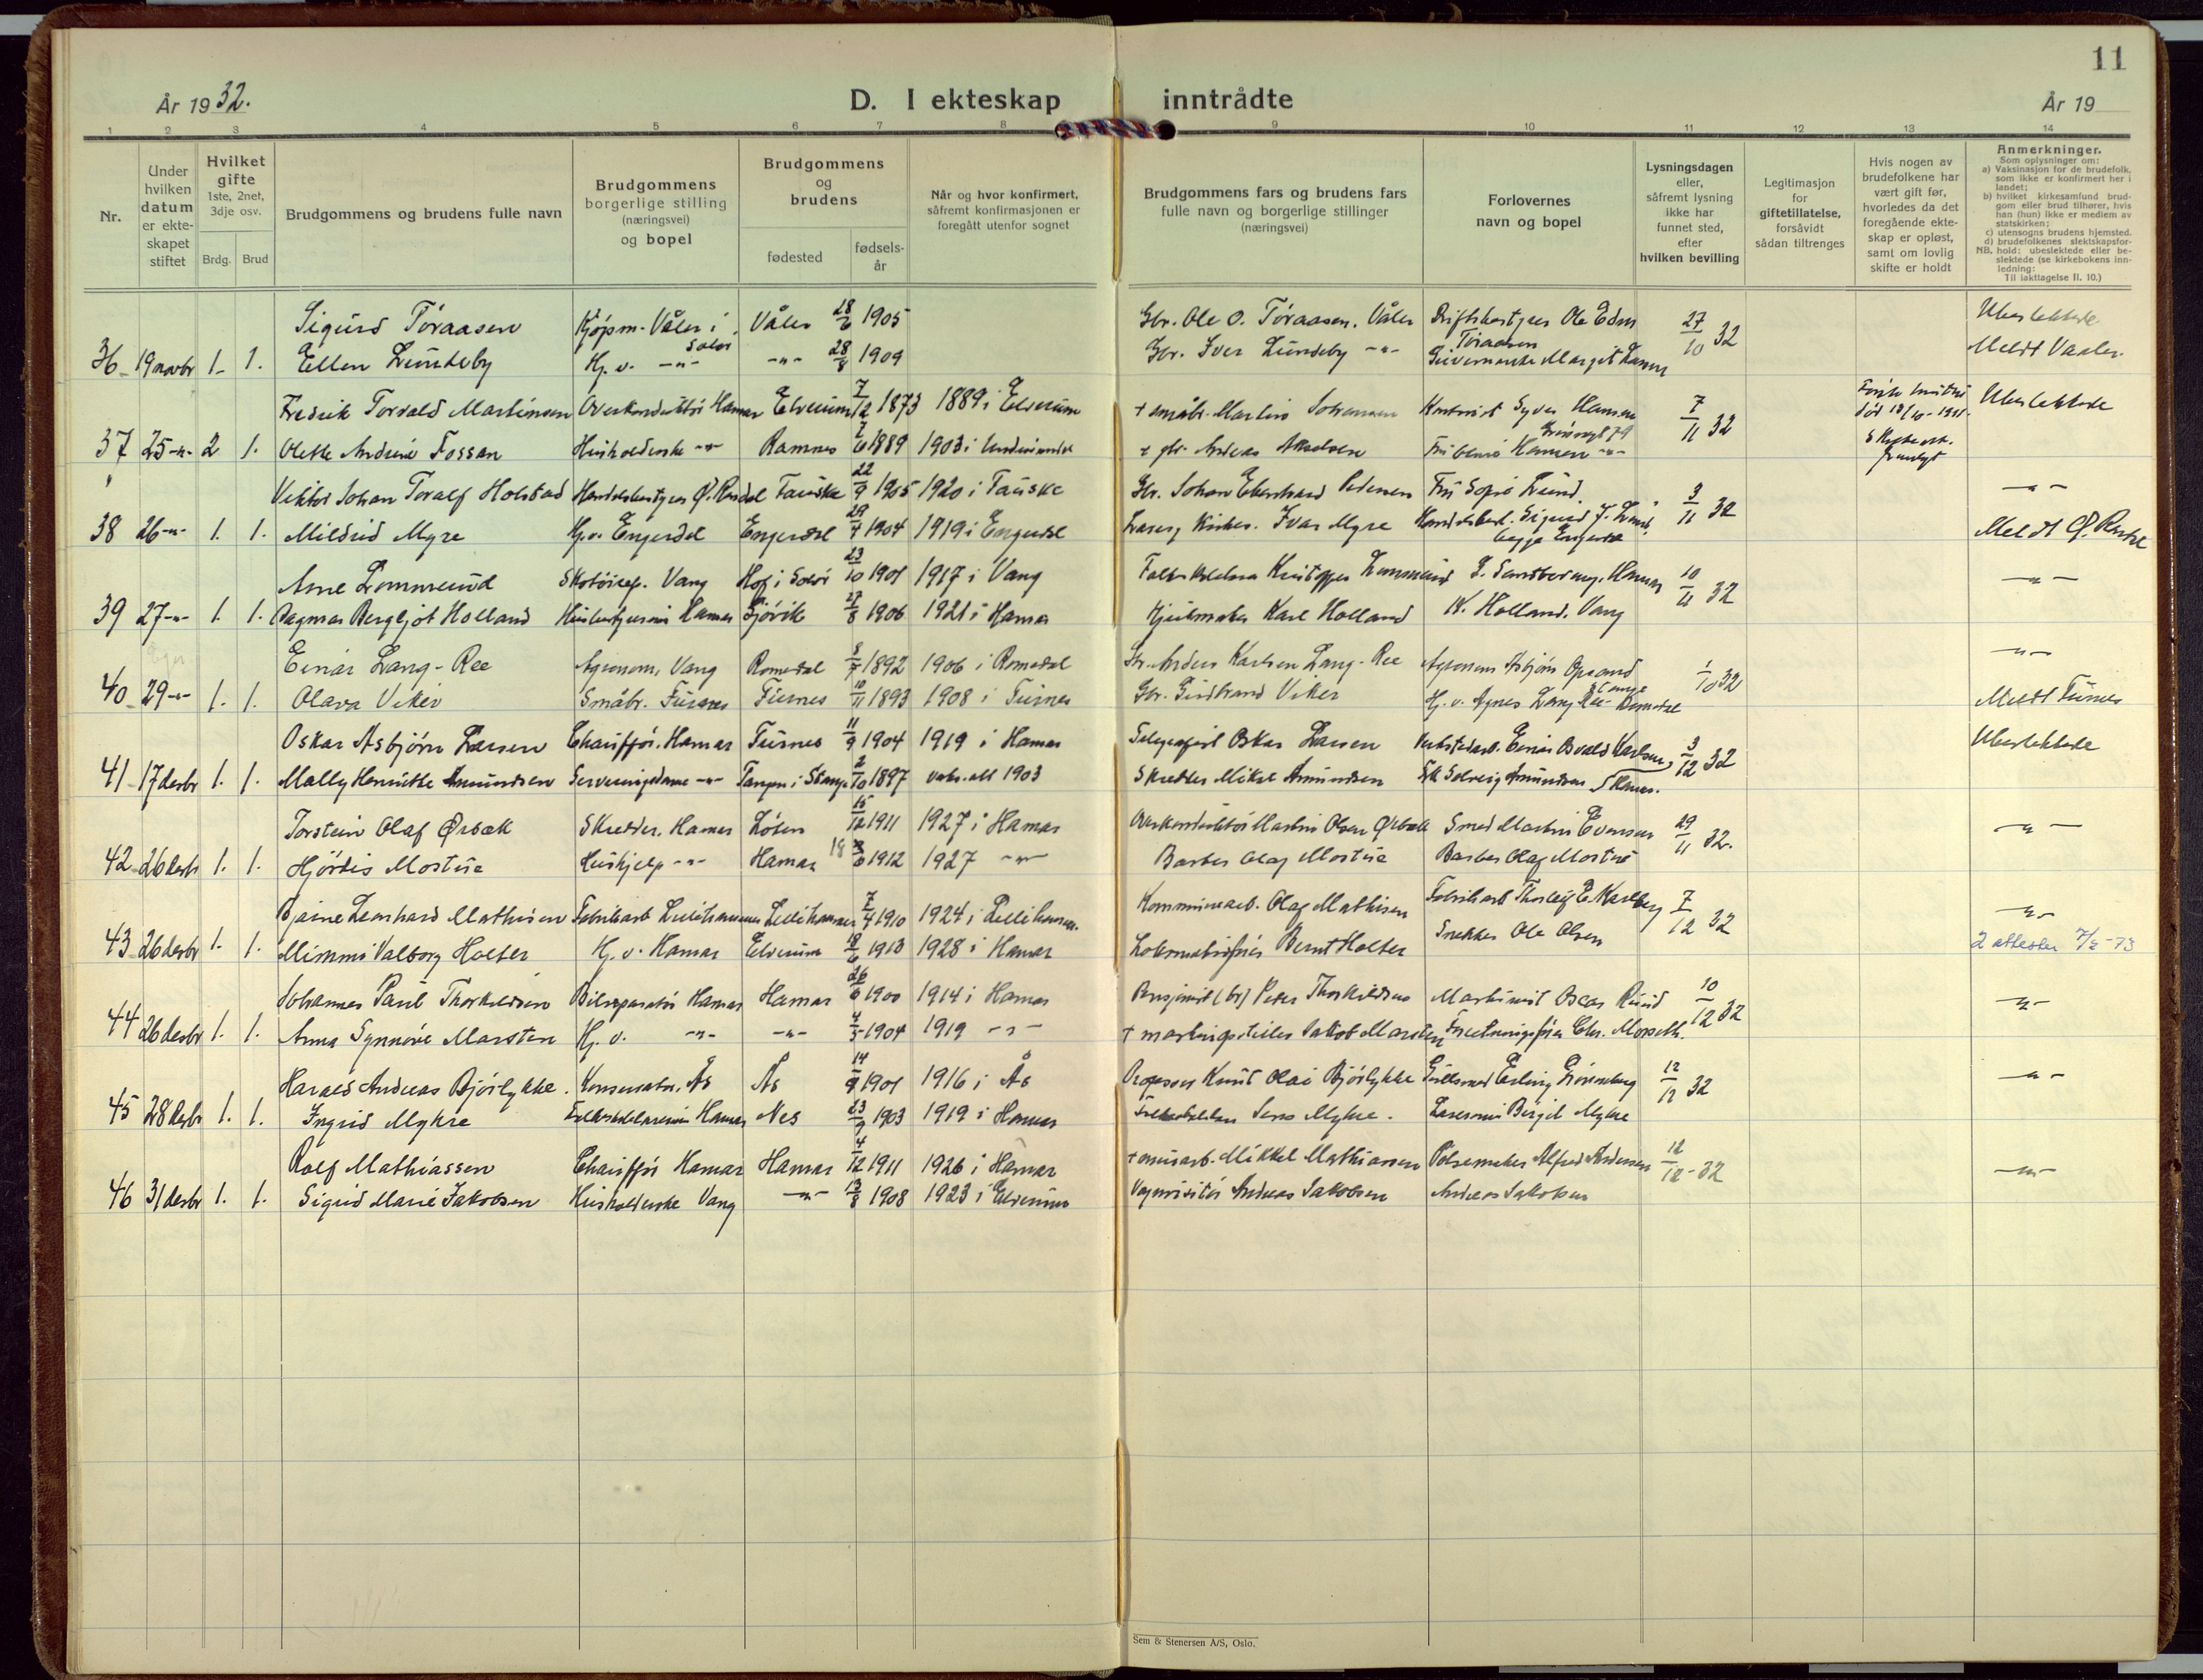 11
År 1932.
D. I ekteskap inntrådte
År 19
1 2 3 4 5 6 7 8 9 10 11 12 13 14
Nr.
Under hvilken datum er ekte-skapet stiftet
Hvilket gifte 1ste, 2net, 3dje osv.
Brdg. Brud
Brudgommens og brudens fulle navn
Brudgommens borgerlige stilling (næringsvei) og bopel
Brudgommens og brudens
fødested
fødsels-år
Når og hvor konfirmert, såfremt konfirmasjonen er foregått utenfor sognet
Brudgommens fars og brudens fars fulle navn og borgerlige stillinger (næringsvei)
Forlovernes navn og bopel
Lysningsdagen eller, såfremt lysning ikke har funnet sted, efter hvilken bevilling
Legitimasjon for giftetillatelse, forsåvidt sådan tiltrenges
Hvis nogen av brudefolkene har vært gift før, hvorledes da det foregående ekte-skap er opløst, samt om lovlig skifte er holdt
Anmerkninger.
Som oplysninger om:
a) Vaksinasjon for de brudefolk, som ikke er konfirmert her i landet;
b) hvilket kirkesamfund brud-gom eller brud tilhører, hvis han (hun) ikke er medlem av statskirken;
c) utensogns brudens hjemsted.
d) brudefolkenes slektskapsfor-hold: ubeslektede eller be-slektede (se kirkebokens inn-ledning:
NB.
Til iakttagelse II. 10.)
Sigurd Toraasen Kjøpm. Våler i Solør Våler 28/6 1905 Gbr. Ole O. Toraasen, Våler Driftsbestyrer Ole Edm Toraasen 27/10 32 Ubeslektede
36 19 novbr 1. 1. Ellen Lundeby Hj.v. -"- -"- 28/8 1909 Gbr. Iver Lundeby -"- Margit Meldt Vaaler.
Fredrik Torvald Martinsen Overkonduktør Hamar Elverum 7/12 1873 1889 i Elverum + småbr. Martin Johannesen Syver Hansen 7/11 32 Ubeslektede
37 25 -"- 2 1. Olette Andrine Fossan Husholderske -"- Ramnes 1889 1903 i + gbr. Andreas Hansen -"-
Viktor Johan Toralf Holstad Handelsbestyrer Ø. Rendal Fauske 22/9 1905 1920 i Fauske Gbr. Johan Eberhard Pedersen Fru Sofie Lund 3/11 32 -"-
38 26 -"- 1. 1. Mildrid Myre Hj.v. Engerdal Engerdal 29/4 1904 1919 i Engerdal Ivar Myre Sigurd J. Lund, begge Engerdal Meldt Ø. Rendal
Arne Lommerud Skotøirep. Vang Hof i Solør 23/10 1901 1917 i Vang Kristoffer Lommerud Hamar 10/11 32 -"-
39 27 -"- 1. 1. Dagmar Bergljot Holland Husbestyrerinne Hamar Gjøvik 27/8 1906 1921 i Hamar Hjulmaker Karl Holland K. Holland. Vang
Einar Lang-Ree Agronom, Vang Romedal 8/7 1892 1906 i Romedal Gbr. Anders Karlsen Lang-Ree Agronom Asbjørn Opsand 1/10 32 -"-
40 29 -"- 1. 1. Olava Viker Småbr. Furnes Furnes 10/11 1893 1908 i Furnes Gbr. Gudbrand Viker Hj.v. Agnes Lang-Ree Romedal Meldt Furnes
Oskar Asbjørn Larsen Chauffør, Hamar Furnes 11/9 1904 1919 i Hamar Telegrafist Oskar Larsen Verkstedarb. Einar Osvald Karlsen, 3/12 32 Ubeslektede
41 17 desbr 1. 1. Mally Henriette Amundsen Serveringsdame -"- Tangen i Stange 2/10 1897 1903 Skredder Mikal Amundsen Frk Solveig Amundsen Hamar.
Torstein Olaf Ørbæk Skredder, Hamar Løten 15/12 1911 1927 i Hamar Overkonduktør Martin Olsen Ørbæk Smed Martin Evensen 29/11 32. -"-
42 26 desbr 1. 1. Hjørdis Mostue Hushjelp -"- Hamar 18/6 1912 1927 -"- Barber Olaf Mostue Barber Olaf Mostue
Bjarne Leonhard Mathisen Fabrikarb. Lillehammer Lillehammer 7/4 1910 1924 i Lillehammer. Kommunearb. Olaf Mathisen Fabrikarb. Thorleif E. Karlberg 7/12 32 -"-
43 26 desbr 1. 1. Mimmi Valborg Holter Hj.v. Hamar Elverum 1913 1928 i Hamar Bernt Holter Snekker Ole Olsen 2 attester 7/2-73
Johannes Paul Thorkildsen Bilreparatør Hamar Hamar 26/6 1900 1914 i Hamar Pensjonist Peter Thorkildsen Maskinist Oscar Ruud 10/12 32 -"-
44 26 desbr 1. 1. Anna Synnøve Marsten Hj.v. -"- -"- 4/5 1904 1919 -"- + Jakob Marsten Chr. Morseth.
Harald Andreas Bjørlykke. Konservator, Ås Ås 14/9 1901 1916 i Ås Professor Knut Olai Bjørlykke Gullsmed Erling Grønneberg 12/12 32 -"-
45 28 desbr 1. 1. Ingrid Mykre Hamar Nes 1903 1919 i Hamar Jens Mykre. Lærerinne Bergit Mykre
Rolf Mathiassen Chauffør Hamar Hamar 4/12 1911 1926 i Hamar + Mikkel Mathiassen Pølsemaker Alfred Andersen 12/12-32 -"-
46 31 desbr 1. 1. Sigrid Marie Jakobsen Husholderske Vang -"- 13/8 1908 1923 i Elverum Vognvisitør Andreas Jakobsen Andreas Jakobsen
Sem & Stenersen A/S, Oslo.